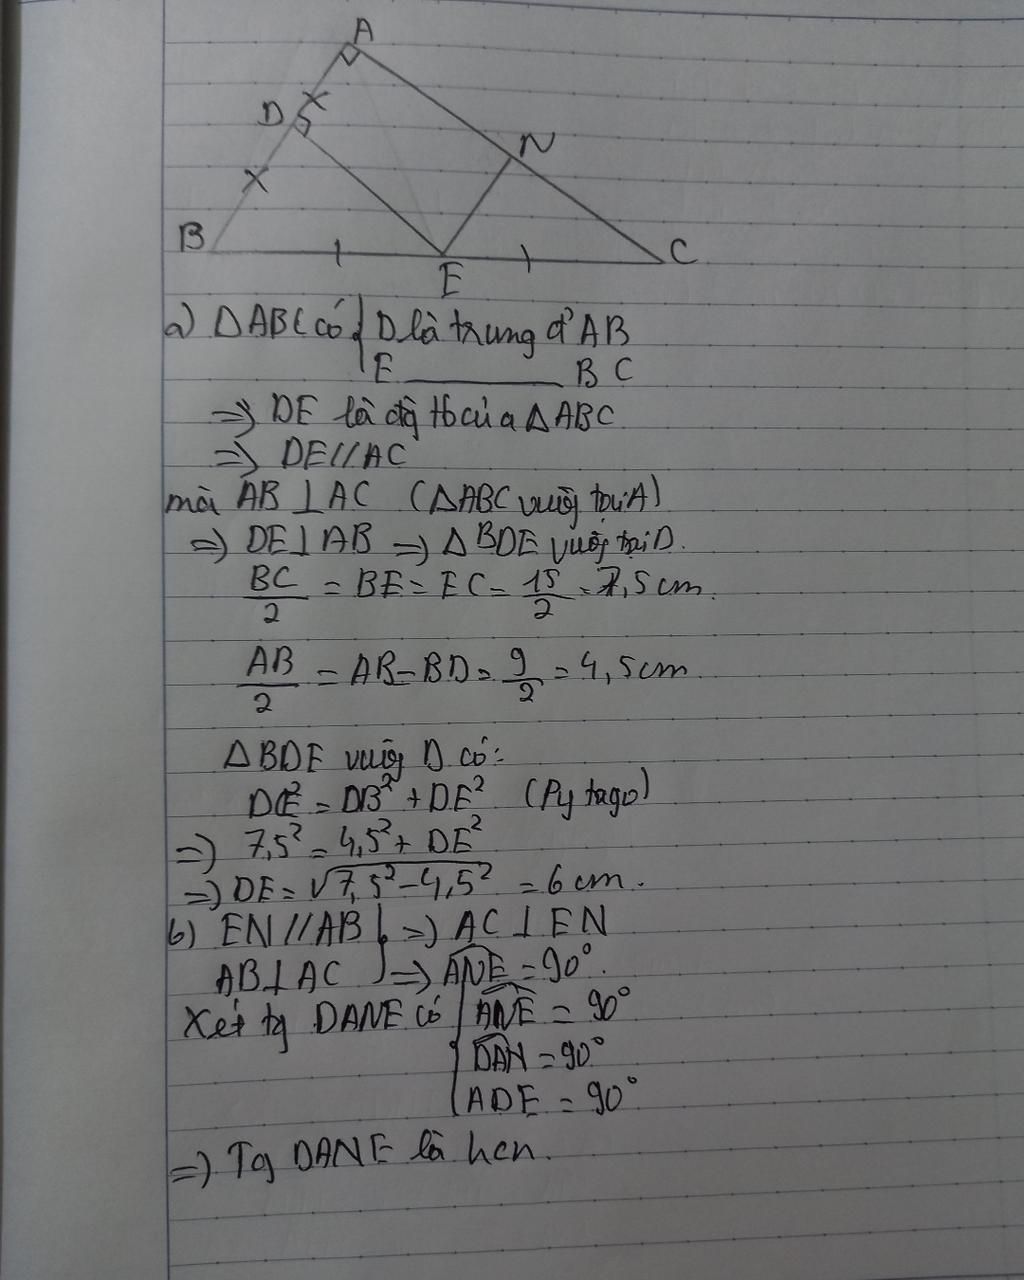 A
D
N
B
E
C
a) ΔABC có { D là trung đ' AB
E ______ BC
=> DE là đg tb của ΔABC
=> DE // AC
mà AB ⊥ AC (ΔABC vuông tại A)
=> DE ⊥ AB => ΔBDE vuông tại D.
BC/2 = BE = EC = 15/2 = 7,5 cm.
AB/2 = AB - BD = 9/2 = 4,5 cm.
ΔBDE vuông D có:
= DB² + DE² (Pytago)
=> 7,5² = 4,5² + DE²
=> DE = √(7,5² - 4,5²) = 6 cm.
b) EN // AB } => AC ⊥ EN
AB ⊥ AC } => ANE = 90°.
Xét tg DANE có { ANE = 90°
DAN = 90°
ADE = 90°
=> Tg DANE là hcn.